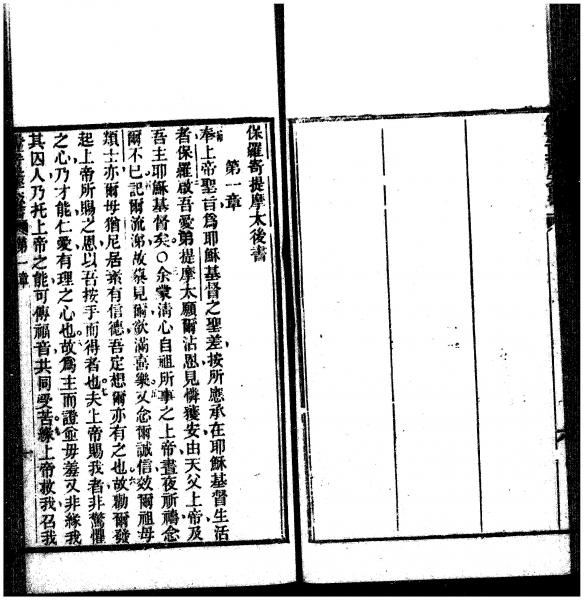 保羅寄提摩太後書
第一章
奉上帝聖旨爲耶穌基督之聖差按所應承在耶穌基督生活
者保羅啟吾愛弟提摩太願爾沾恩見憐獲安由天父上帝及
吾主耶穌基督矣〇余蒙清心自祖所事之上帝晝夜祈禱念
爾不已記爾流涕故冀見爾欲滿喜樂又念爾誠信效爾祖母
類士亦爾母猶尼居素有信德吾定想爾亦有之也故勸爾發
起上帝所賜之恩以吾按手而得者也夫上帝賜我者非驚懼
之心乃才能仁愛有理之心也故爲主而證並毋羞又非緣我
其囚人乃托上帝之能可傳福音共同受苦緣上帝救我召我
第一章